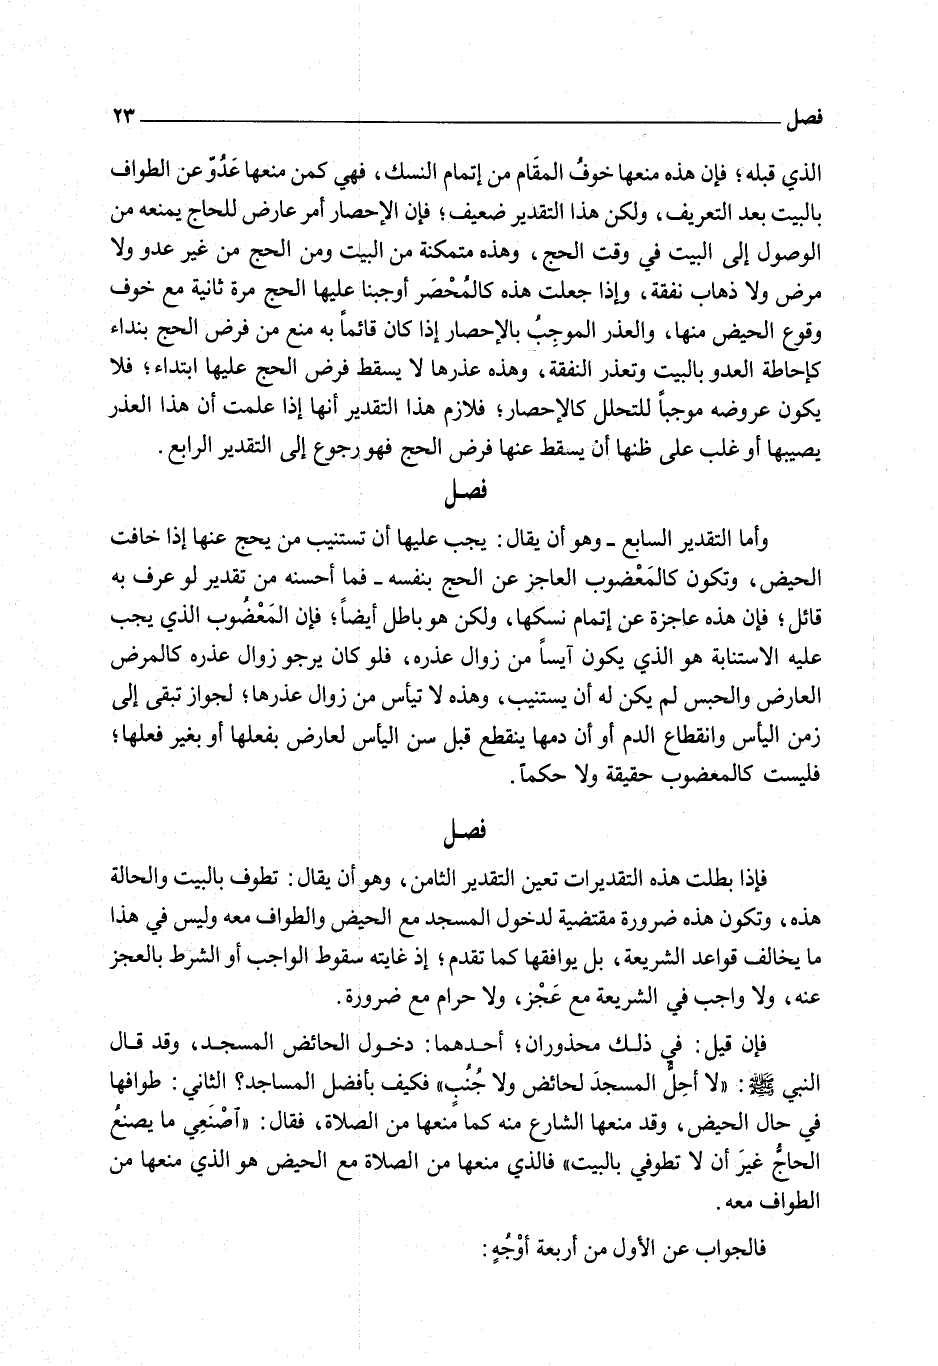 فصل ٢٣
الذي قبله؛ فإن هذه منعها خوفُ المقَام من إتمام النسك، فهي كمن منعها عَدُوّ عن الطواف
بالبيت بعد التعريف، ولكن هذا التقدير ضعيف؛ فإن الإحصار أمر عارض للحاج يمنعه من
الوصول إلى البيت في وقت الحج، وهذه متمكنة من البيت ومن الحج من غير عدو ولا
مرض ولا ذهاب نفقة، وإذا جعلت هذه كالمُحْصَر أوجبنا عليها الحج مرة ثانية مع خوف
وقوع الحيض منها، والعذر الموجِبُ بالإحصار إذا كان قائماً به منع من فرض الحج بنداء
كإحاطة العدو بالبيت وتعذر النفقة، وهذه عذرها لا يسقط فرض الحج عليها ابتداء؛ فلا
يكون عروضه موجباً للتحلل كالإحصار؛ فلازم هذا التقدير أنها إذا علمت أن هذا العذر
يصيبها أو غلب على ظنها أن يسقط عنها فرض الحج فهو رجوع إلى التقدير الرابع.
فصل
وأما التقدير السابع ـ وهو أن يقال: يجب عليها أن تستنيب من يحج عنها إذا خافت
الحيض، وتكون كالمَعْضوب العاجز عن الحج بنفسه ـ فما أحسنه من تقدير لو عرف به
قائل؛ فإن هذه عاجزة عن إتمام نسكها، ولكن هو باطل أيضاً؛ فإن المَعْضُوب الذي يجب
عليه الاستنابة هو الذي يكون آيساً من زوال عذره، فلو كان يرجو زوال عذره كالمرض
العارض والحبس لم يكن له أن يستنيب، وهذه لا تيأس من زوال عذرها؛ لجواز تبقى إلى
زمن اليأس وانقطاع الدم أو أن دمها ينقطع قبل سن اليأس لعارض بفعلها أو بغير فعلها؛
فليست كالمعضوب حقيقة ولا حكماً.
فصل
فإذا بطلت هذه التقديرات تعين التقدير الثامن، وهو أن يقال: تطوف بالبيت والحالة
هذه، وتكون هذه ضرورة مقتضية لدخول المسجد مع الحيض والطواف معه وليس في هذا
ما يخالف قواعد الشريعة، بل يوافقها كما تقدم؛ إذ غايته سقوط الواجب أو الشرط بالعجز
عنه، ولا واجب في الشريعة مع عَجْز، ولا حرام مع ضرورة.
فإن قيل: في ذلك محذوران؛ أحدهما: دخول الحائض المسجد، وقد قال
النبي ﷺ: «لا أحِلُّ المسجدَ لحائض ولا جُنُبٍ» فكيف بأفضل المساجد؟ الثاني: طوافها
في حال الحيض، وقد منعها الشارع منه كما منعها من الصلاة، فقال: «ٱصْنَعِي ما يصنعُ
الحاجُّ غيرَ أن لا تطوفي بالبيت» فالذي منعها من الصلاة مع الحيض هو الذي منعها من
الطواف معه.
فالجواب عن الأول من أربعة أوْجُهٍ: